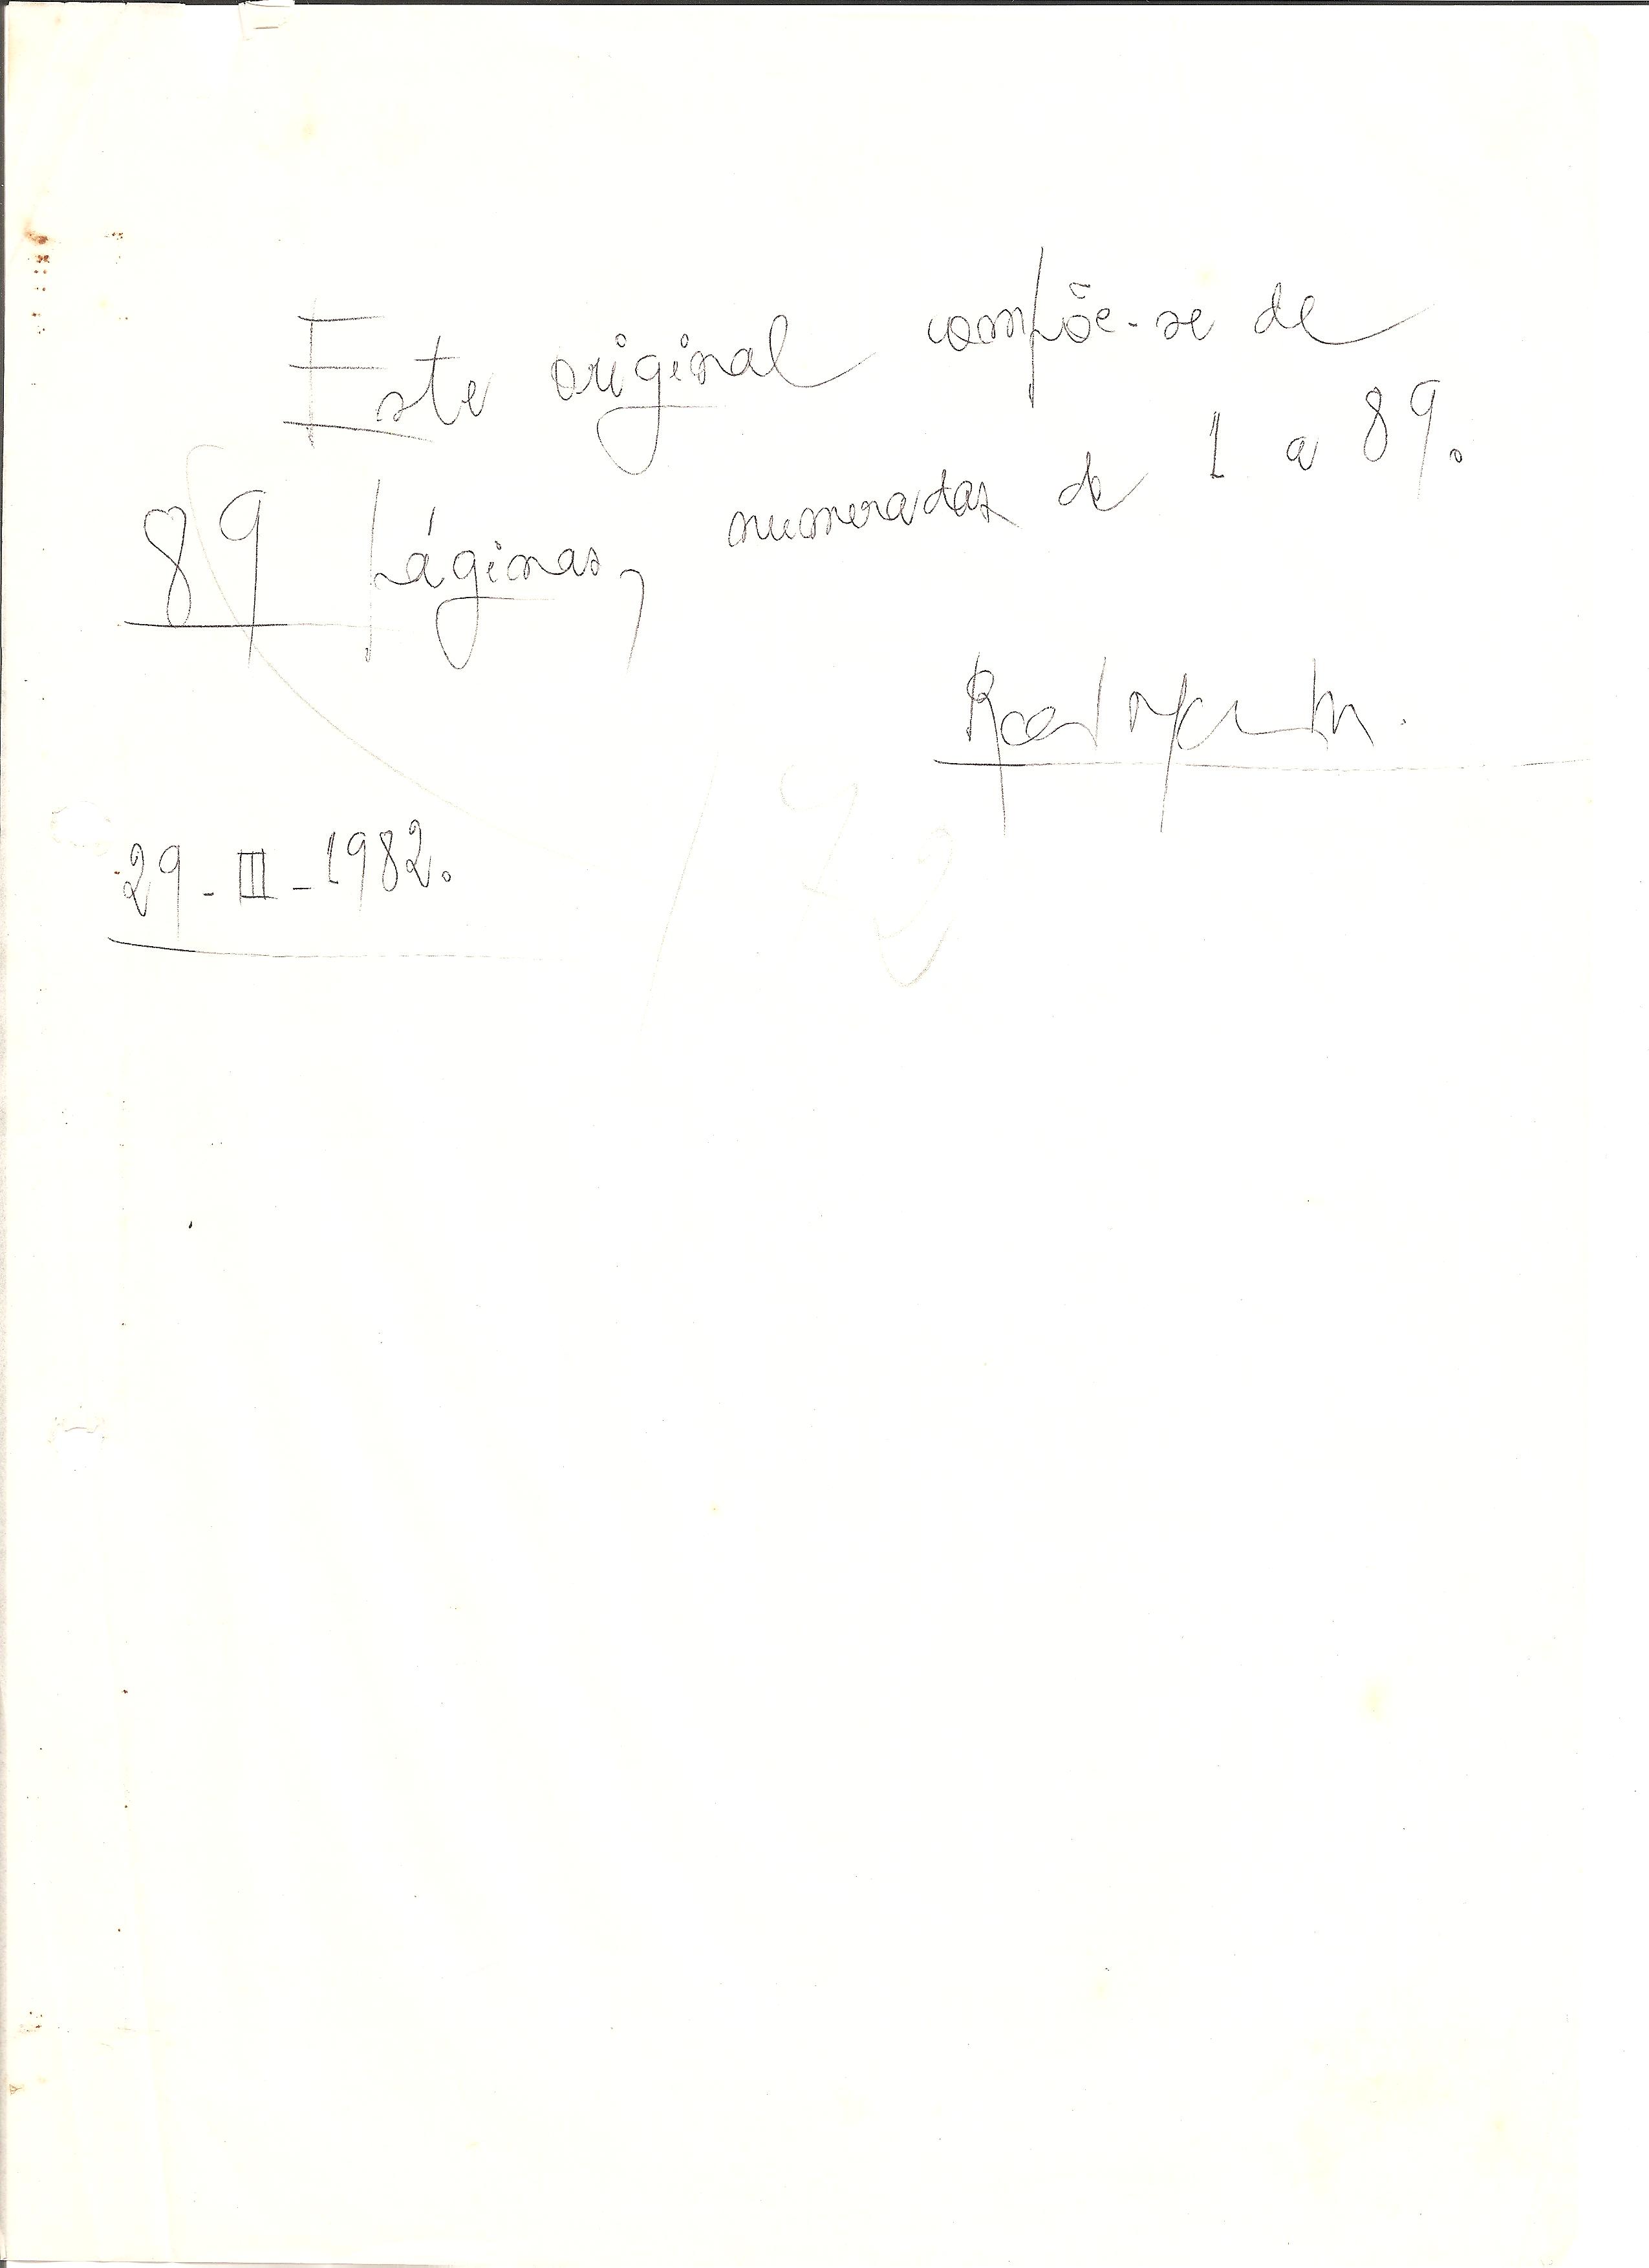 Este original compõe-se de
89 páginas, numeradas de 1 a 89.
29-III-1982.